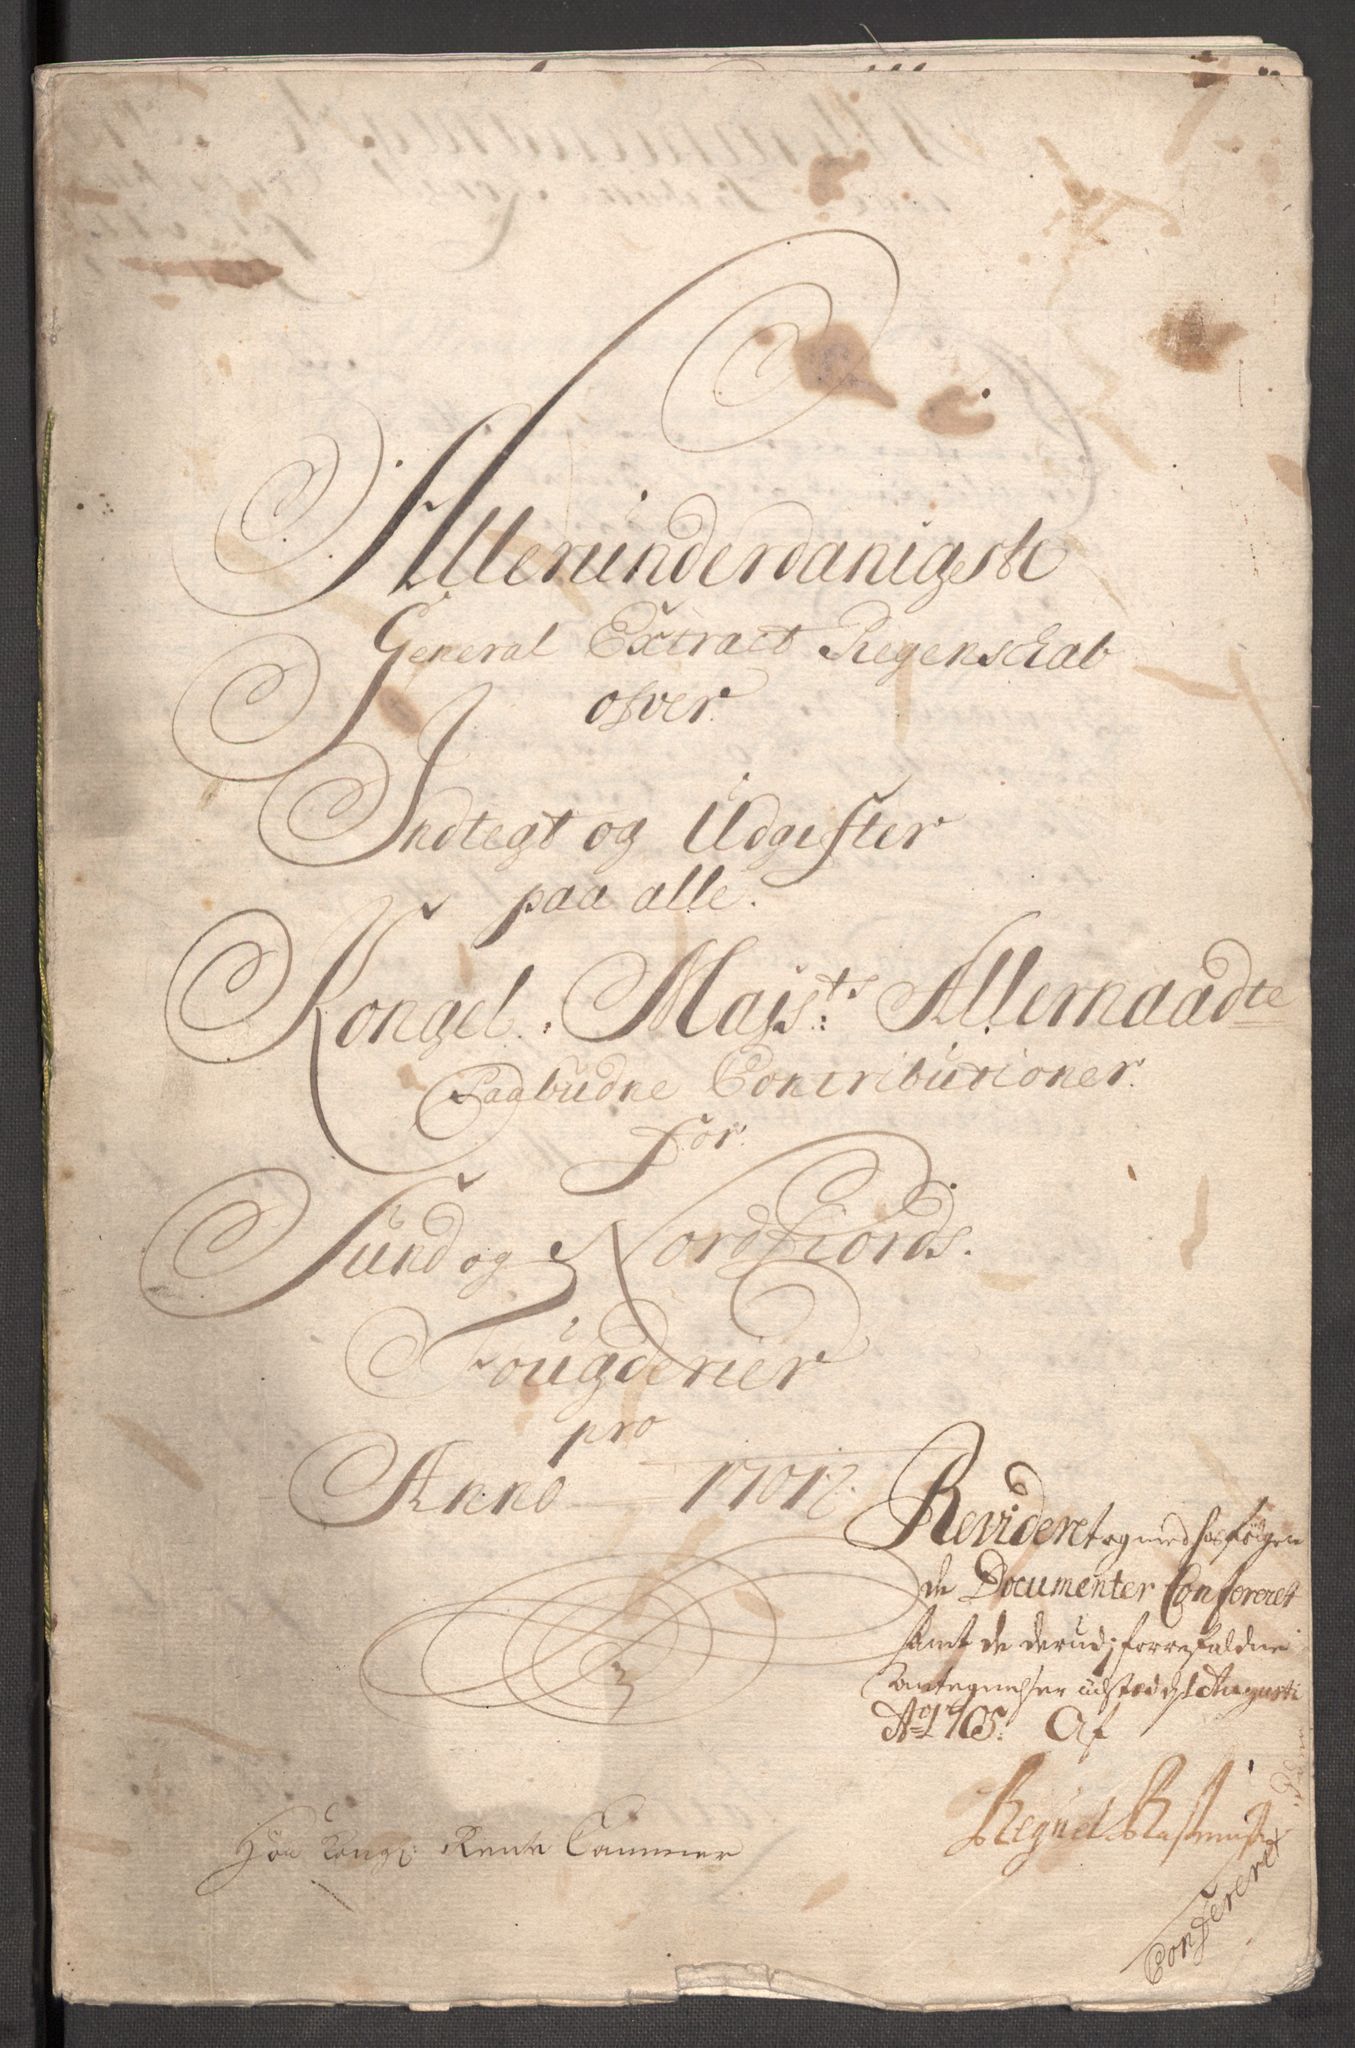 Alleründerdanigste
General Extract Regenschab
ofver
Indtegt og Üdgifter
paa alle
Kongel. Majs:ts Allernaadte
Paabudne Contributioner
for
Sund og NordFiords
Fougderier
pro
Anno 1701
Revideret og med hosfølgen
de Documenter Confereret
samt de derudj forrefaldne
antegnelser üdsted d: 1 Augusti
Ao 1705. Af
Høy Kongl: Rente Cammer
Confereret